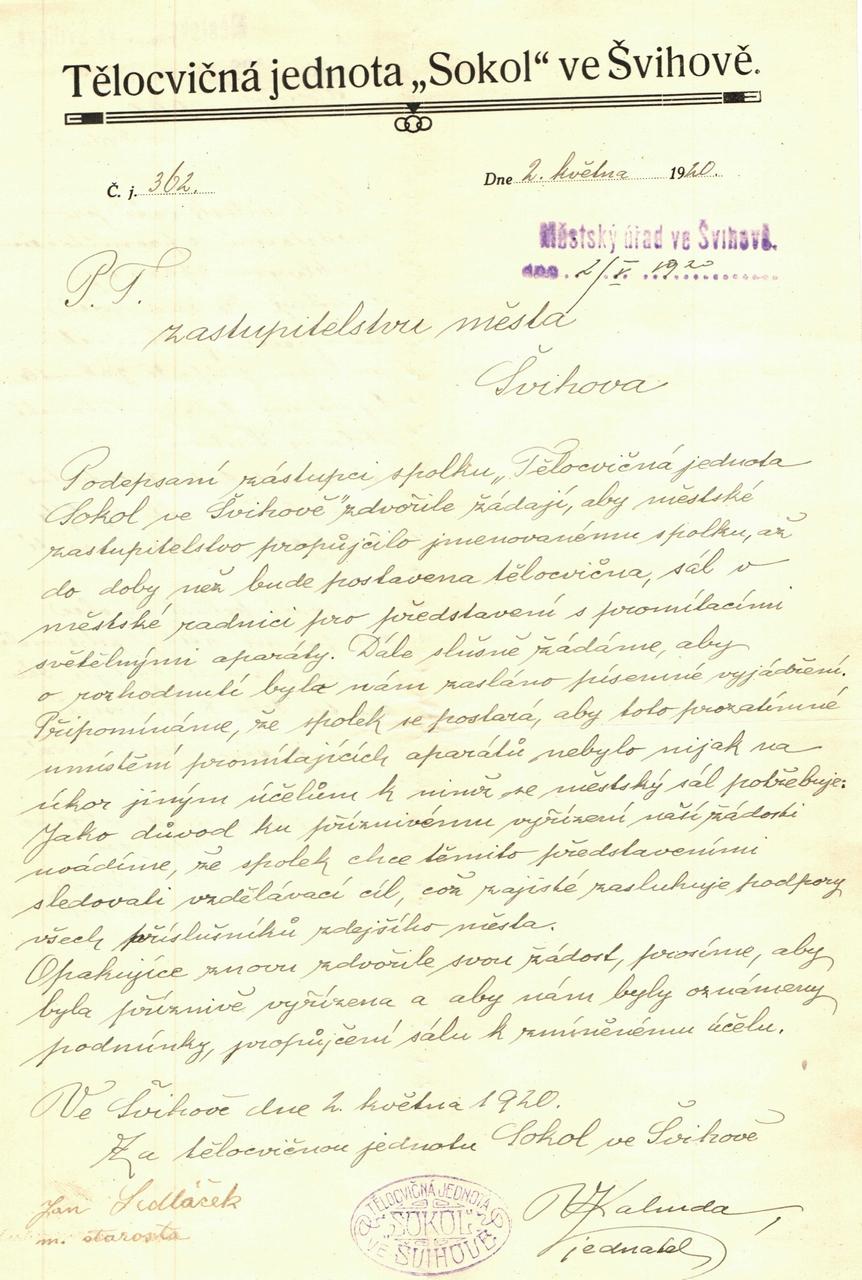 Tělocvičná jednota „Sokol“ ve Švihově.
Č. j. 362.
Dne 2. května 1920.
Městský úřad ve Švihově.
dne 2/V. 1920
P. T.
zastupitelstvu města
Švihova
Podepsaní zástupci spolku „Tělocvičná jednota
Sokol ve Švihově" zdvořile žádají, aby městské
zastupitelstvo propůjčilo jmenovanému spolku, až
do doby než bude postavena tělocvična, sál v
městské radnici pro představení s promítacími
světelnými aparáty. Dále slušně žádáme, aby
o rozhodnutí bylo nám zasláno písemné vyjádření.
Připomínáme, že spolek se postará, aby toto prozatímné
umístění promítajících aparátů nebylo nijak na
úkor jiným účelům k nimž se městský sál potřebuje.
Jako důvod ku příznivému vyřízení naší žádosti
uvádíme, že spolek chce těmito představeními
sledovati vzdělávací cíl, což zajisté zasluhuje podpory
všech příslušníků zdejšího města.
Opakujíce znovu zdvořile svou žádost, prosíme, aby
byla příznivě vyřízena a aby nám byly oznámeny
podmínky, propůjčení sálu k zmíněnému účelu.
Ve Švihově dne 2. května 1920.
Za tělocvičnou jednotu Sokol ve Švihově
Jan Sedláček
m. starosta
TĚLOCVIČNÁ JEDNOTA
„SOKOL“
VE ŠVIHOVĚ
Kalnda,
jednatel